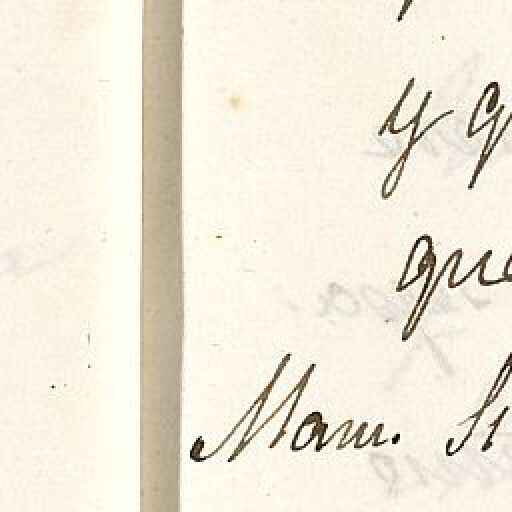 y q
que
Mam. Si